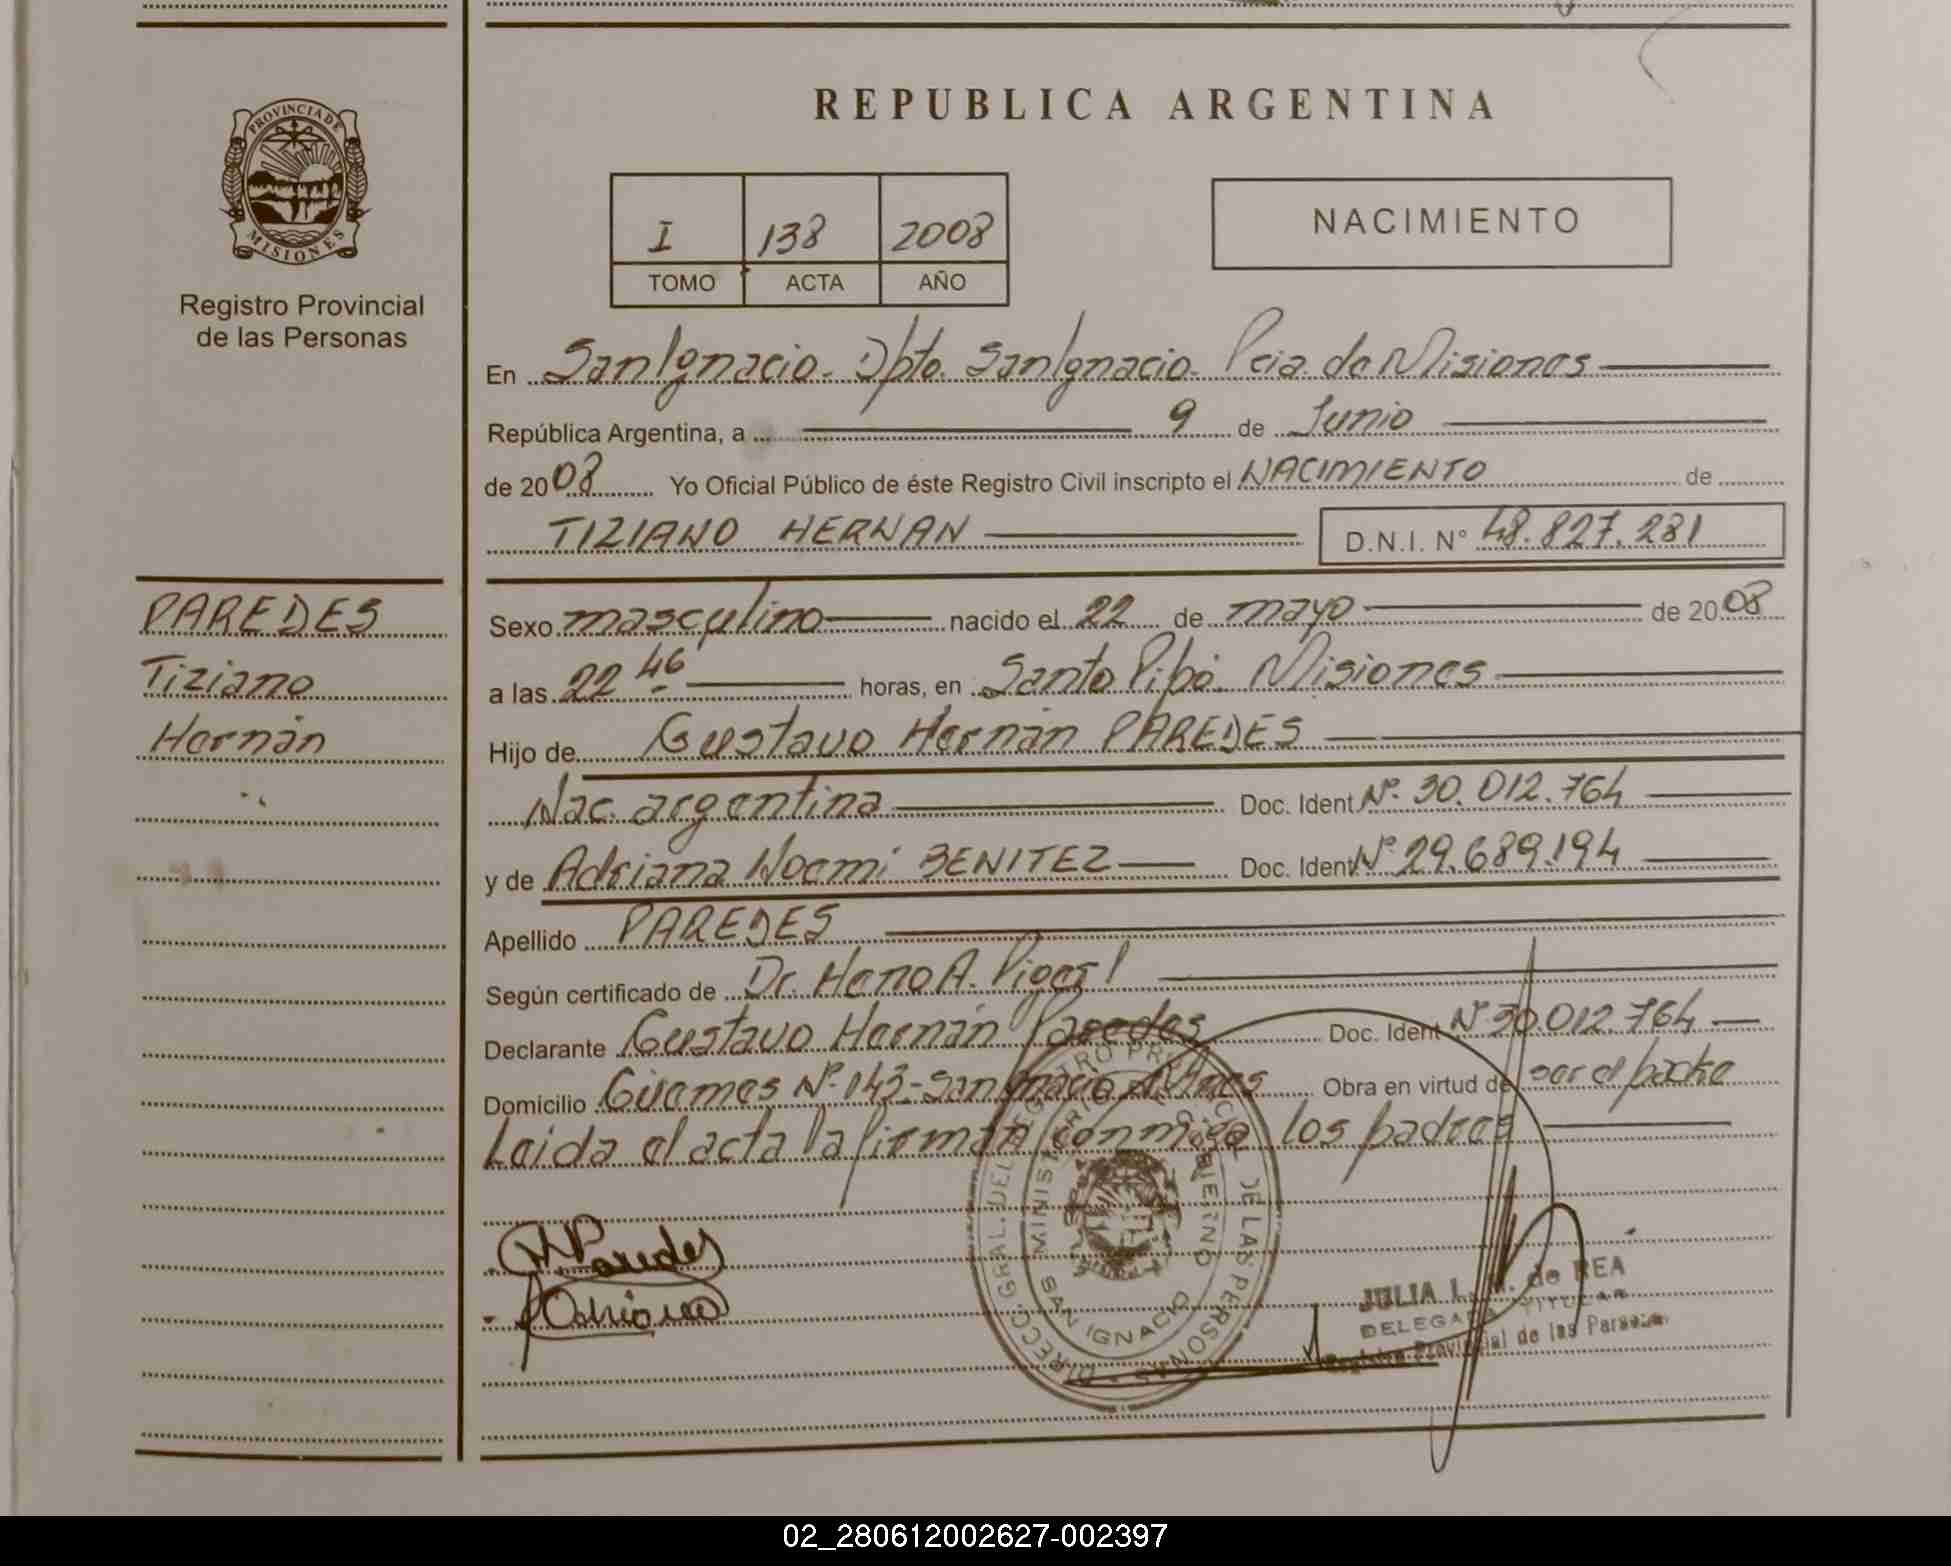 PROVINCIA DE
MISIONES
Registro Provincial
de las Personas
REPUBLICA ARGENTINA
I 138 2008
TOMO ACTA AÑO
NACIMIENTO
En San Ignacio. Dpto. San Ignacio. Pcia. de Misiones
República Argentina, a 9 de Junio
de 2008 Yo Oficial Público de éste Registro Civil inscripto el NACIMIENTO de
TIZIANO HERNAN D.N.I. N° 48.827.281
PAREDES
Tiziano
Hernán
Sexo masculino nacido el 22 de mayo de 2008
a las 22 46 horas, en Santo Pipó. Misiones
Hijo de Gustavo Hernán PAREDES
Nac. argentina Doc. Ident Nº. 30.012.764
y de Adriana Noemi BENITEZ Doc. Ident Nº. 29.689.194
Apellido PAREDES
Según certificado de Dr. A.
Declarante Gustavo Hernán Paredes Doc. Ident Nº 30.012.764
Domicilio Güemes Nº. 143-San Ignacio Obra en virtud de ser el padre
Leida el acta la firman conmigo los padres
H Paredes
Adriana
DIRECC. GRAL. DEL REGISTRO PROVINCIAL DE LAS PERSONAS
MINISTERIO DE GOBIERNO
SAN IGNACIO
JULIA L. M. de REA
DELEGADA TITULAR
Registro Provincial de las Personas
02_280612002627-002397